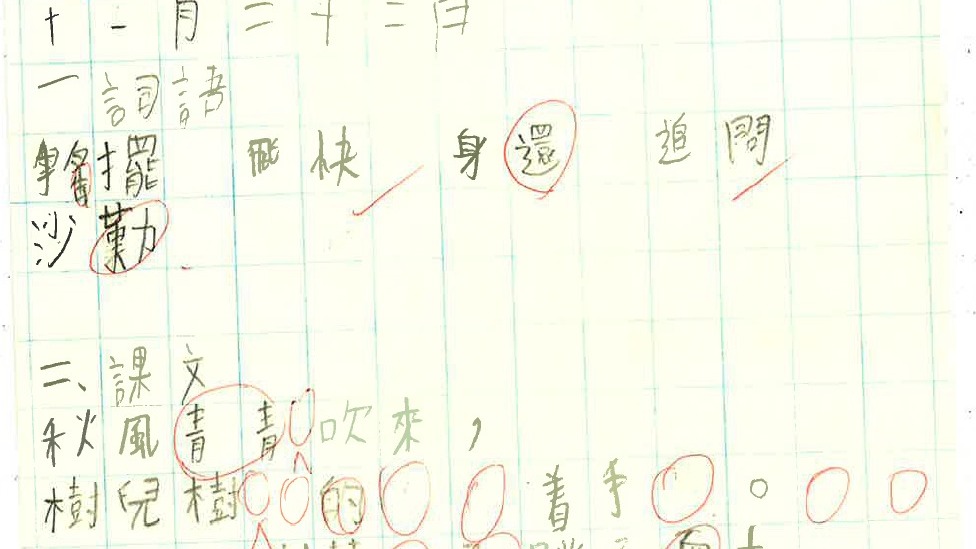 十一月二十二日
一 詞語
擺 飛快 身還 追問
沙勤
二、課文
秋風青青吹來，
樹兒樹的着手。